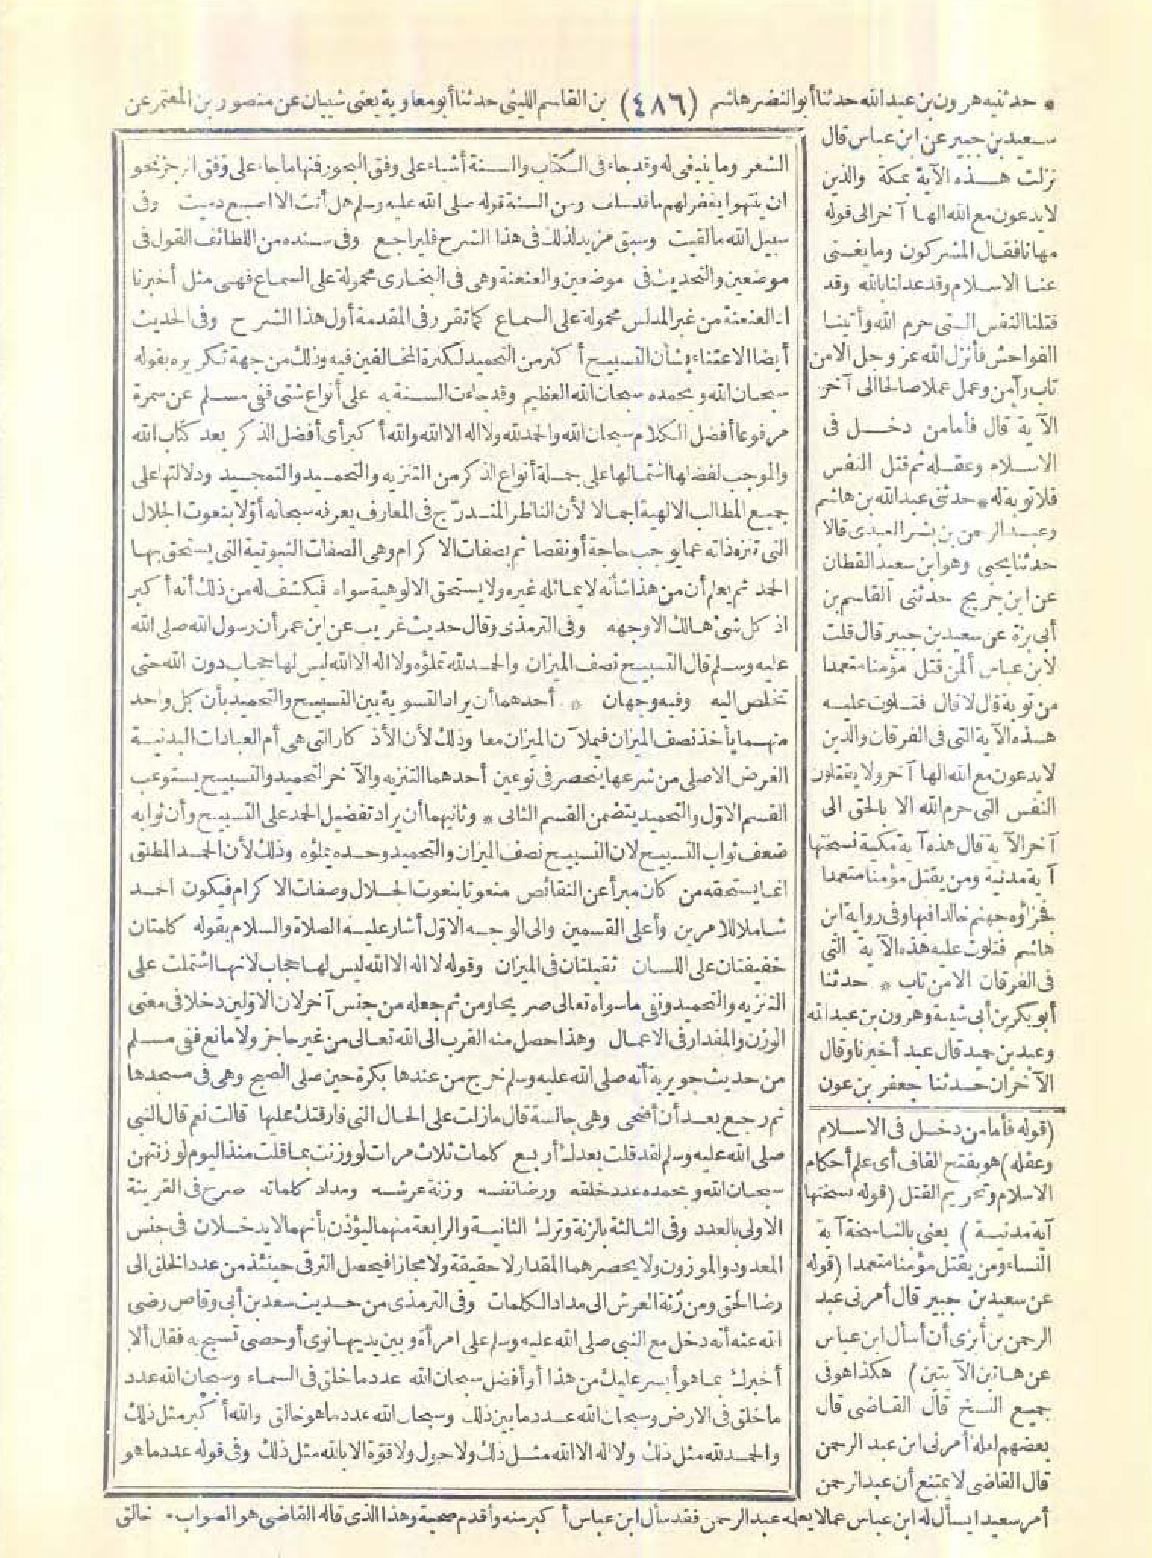 * حدثنيه هرون بن عبد الله حدثنا أبو النضر هاشم (٤٨٦) بن القاسم الليثى حدثنا أبو معاوية يعنى شيبان عن منصور بن المعتمر عن
سعيد بن جبير عن ابن عباس قال
نزلت هذه الآية بمكة والذين
لا يدعون مع الله الها آخر الى قوله
مهانا فقال المشركون وما يغنى
عنا الاسلام وقد عدلنا بالله وقد
قتلنا النفس التى حرم الله وأتينا
الفواحش فأنزل الله عز وجل الا من
تاب وآمن وعمل عملا صالحا الى آخر
الآية قال فأما من دخل فى
الاسلام وعقله ثم قتل النفس
فلا توبة له * حدثنى عبد الله بن هاشم
وعبد الرحمن بن بشر العبدى قالا
حدثنا يحيى وهو ابن سعيد القطان
عن ابن جريج حدثنى القاسم بن
أبى بزة عن سعيد بن جبير قال قلت
لابن عباس ألمن قتل مؤمنا متعمدا
من توبة قال لا قال فتلوت عليه
هذه الآية التى فى الفرقان والذين
لا يدعون مع الله الها آخر ولا يقتلون
النفس التى حرم الله الا بالحق الى
آخر الآية قال هذه آية مكية نسختها
آية مدنية ومن يقتل مؤمنا متعمدا
فجزاؤه جهنم خالدا فيها وفى رواية ابن
هاشم فتلوت عليه هذه الآية التى
فى الفرقان الا من تاب * حدثنا
أبو بكر بن أبى شيبة وهرون بن عبد الله
وعبد بن حميد قال عبد أخبرنا وقال
الآخران حدثنا جعفر بن عون
(قوله فأما من دخل فى الاسلام
وعقله) هو بفتح القاف أى علم أحكام
الاسلام وتحريم القتل (قوله نسختها
آية مدنية) يعنى بالناسخة آية
النساء ومن يقتل مؤمنا متعمدا (قوله
عن سعيد بن جبير قال أمرنى عبد
الرحمن بن أبزى أن أسأل ابن عباس
عن هاتين الآيتين) هكذا هو فى
جميع النسخ قال القاضى قال
بعضهم لعله أمرنى ابن عبد الرحمن
قال القاضى لا يمتنع أن عبد الرحمن
أمر سعيدا يسأل له ابن عباس عما لا يعلمه عبد الرحمن فقد سأل ابن عباس أكبر منه وأقدم صحبة وهذا الذى قاله القاضى هو الصواب *
الشعر وما ينبغى له وقد جاء فى الكتاب والسنة أشياء على وفق البحور فنها ما جاء على وفق الرجز نحو
ان ينتهوا يغفر لهم ما قد سلف ومن السنة قوله صلى الله عليه وسلم هل أنت الا اصبع دميت وفى
سبيل الله ما لقيت وسبق مزيد لذلك فى هذا الشرح فليراجع وفى سنده من اللطائف القول فى
موضعين والتحديث فى موضعين والعنعنة وهى فى البخارى محمولة على السماع فهى مثل أخبرنا
اذ العنعنة من غير المدلس محمولة على السماع كما تقرر فى المقدمة أول هذا الشرح وفى الحديث
أيضا الاعتناء بشأن التسبيح أكثر من التحميد لكثرة المخالفين فيه وذلك من جهة تكريره بقوله
سبحان الله وبحمده سبحان الله العظيم وقد جاءت السنة به على أنواع شتى ففى مسلم عن سمرة
مرفوعا أفضل الكلام سبحان الله والحمد لله ولا اله الا الله والله أكبر أى أفضل الذكر بعد كتاب الله
والموجب لفضلها اشتمالها على جملة أنواع الذكر من التنزيه والتحميد والتمجيد ودلالتها على
جميع المطالب الالهية اجمالا لأن الناظر المتدرج فى المعارف يعرفه سبحانه أولا بنعوت الجلال
التى تنزه ذاته عما يوجب حاجة أو نقصا ثم بصفات الاكرام وهى الصفات الثبوتية التى يستحق بها
الحمد ثم يعلم أن من هذا شأنه لا يماثله غيره ولا يستحق الالوهية سواه فيكشف له من ذلك أنه أكبر
اذ كل شئ هالك الا وجهه وفى الترمذى وقال حديث غريب عن ابن عمر أن رسول الله صلى الله
عليه وسلم قال التسبيح نصف الميزان والحمد لله تملؤه ولا اله الا الله ليس لها حجاب دون الله حتى
تخلص اليه وفيه وجهان * أحدهما أن يراد التسوية بين التسبيح والتحميد بأن كل واحد
منهما يأخذ نصف الميزان فيملآن الميزان معا وذلك لأن الأذكار التى هى أم العبادات البدنية
الغرض الاصلى من شرعها ينحصر فى نوعين أحدهما التنزيه والآخر التحميد والتسبيح يستوعب
القسم الاول والتحميد يتضمن القسم الثانى * وثانيهما أن يراد تفضيل الحمد على التسبيح وأن ثوابه
ضعف ثواب التسبيح لان التسبيح نصف الميزان والتحميد وحده يملؤه وذلك لأن الحمد المطلق
انما يستحقه من كان مبرأ عن النقائص منعوتا بنعوت الجلال وصفات الاكرام فيكون الحمد
شاملا للامرين وأعلى القسمين والى الوجه الاول أشار عليه الصلاة والسلام بقوله كلمتان
خفيفتان على اللسان ثقيلتان فى الميزان وقوله لا اله الا الله ليس لها حجاب لانها اشتملت على
التنزيه والتحميد ونفى ما سواه تعالى صريحا ومن ثم جعله من جنس آخر لان الاولين دخلا فى معنى
الوزن والمقدار فى الاعمال وهذا حصل منه القرب الى الله تعالى من غير حاجز ولا مانع ففى مسلم
من حديث جويرية أنه صلى الله عليه وسلم خرج من عندها بكرة حين صلى الصبح وهى فى مسجدها
ثم رجع بعد أن أضحى وهى جالسة قال ما زلت على الحال التى فارقتك عليها قالت نعم قال النبى
صلى الله عليه وسلم لقد قلت بعدك أربع كلمات ثلاث مرات لو وزنت بما قلت منذ اليوم لوزنتهن
سبحان الله وبحمده عدد خلقه ورضا نفسه وزنة عرشه ومداد كلماته صرح فى القرينة
الاولى بالعدد وفى الثالثة بالزنة وترك الثانية والرابعة منهما ليؤذن بأنهما لا يدخلان فى جنس
المعدود والموزون ولا يحصرهما المقدار لا حقيقة ولا مجازا فيحصل الترقى حينئذ من عدد الخلق الى
رضا الحق ومن زنة العرش الى مداد الكلمات وفى الترمذى من حديث سعد بن أبى وقاص رضى
الله عنه أنه دخل مع النبى صلى الله عليه وسلم على امرأة وبين يديها نوى أو حصى تسبح به فقال ألا
أخبرك بما هو أيسر عليك من هذا أو أفضل سبحان الله عدد ما خلق فى السماء وسبحان الله عدد
ما خلق فى الارض وسبحان الله عدد ما بين ذلك وسبحان الله عدد ما هو خالق والله أكبر مثل ذلك
والحمد لله مثل ذلك ولا اله الا الله مثل ذلك ولا حول ولا قوة الا بالله مثل ذلك وفى قوله عدد ما هو
خالق